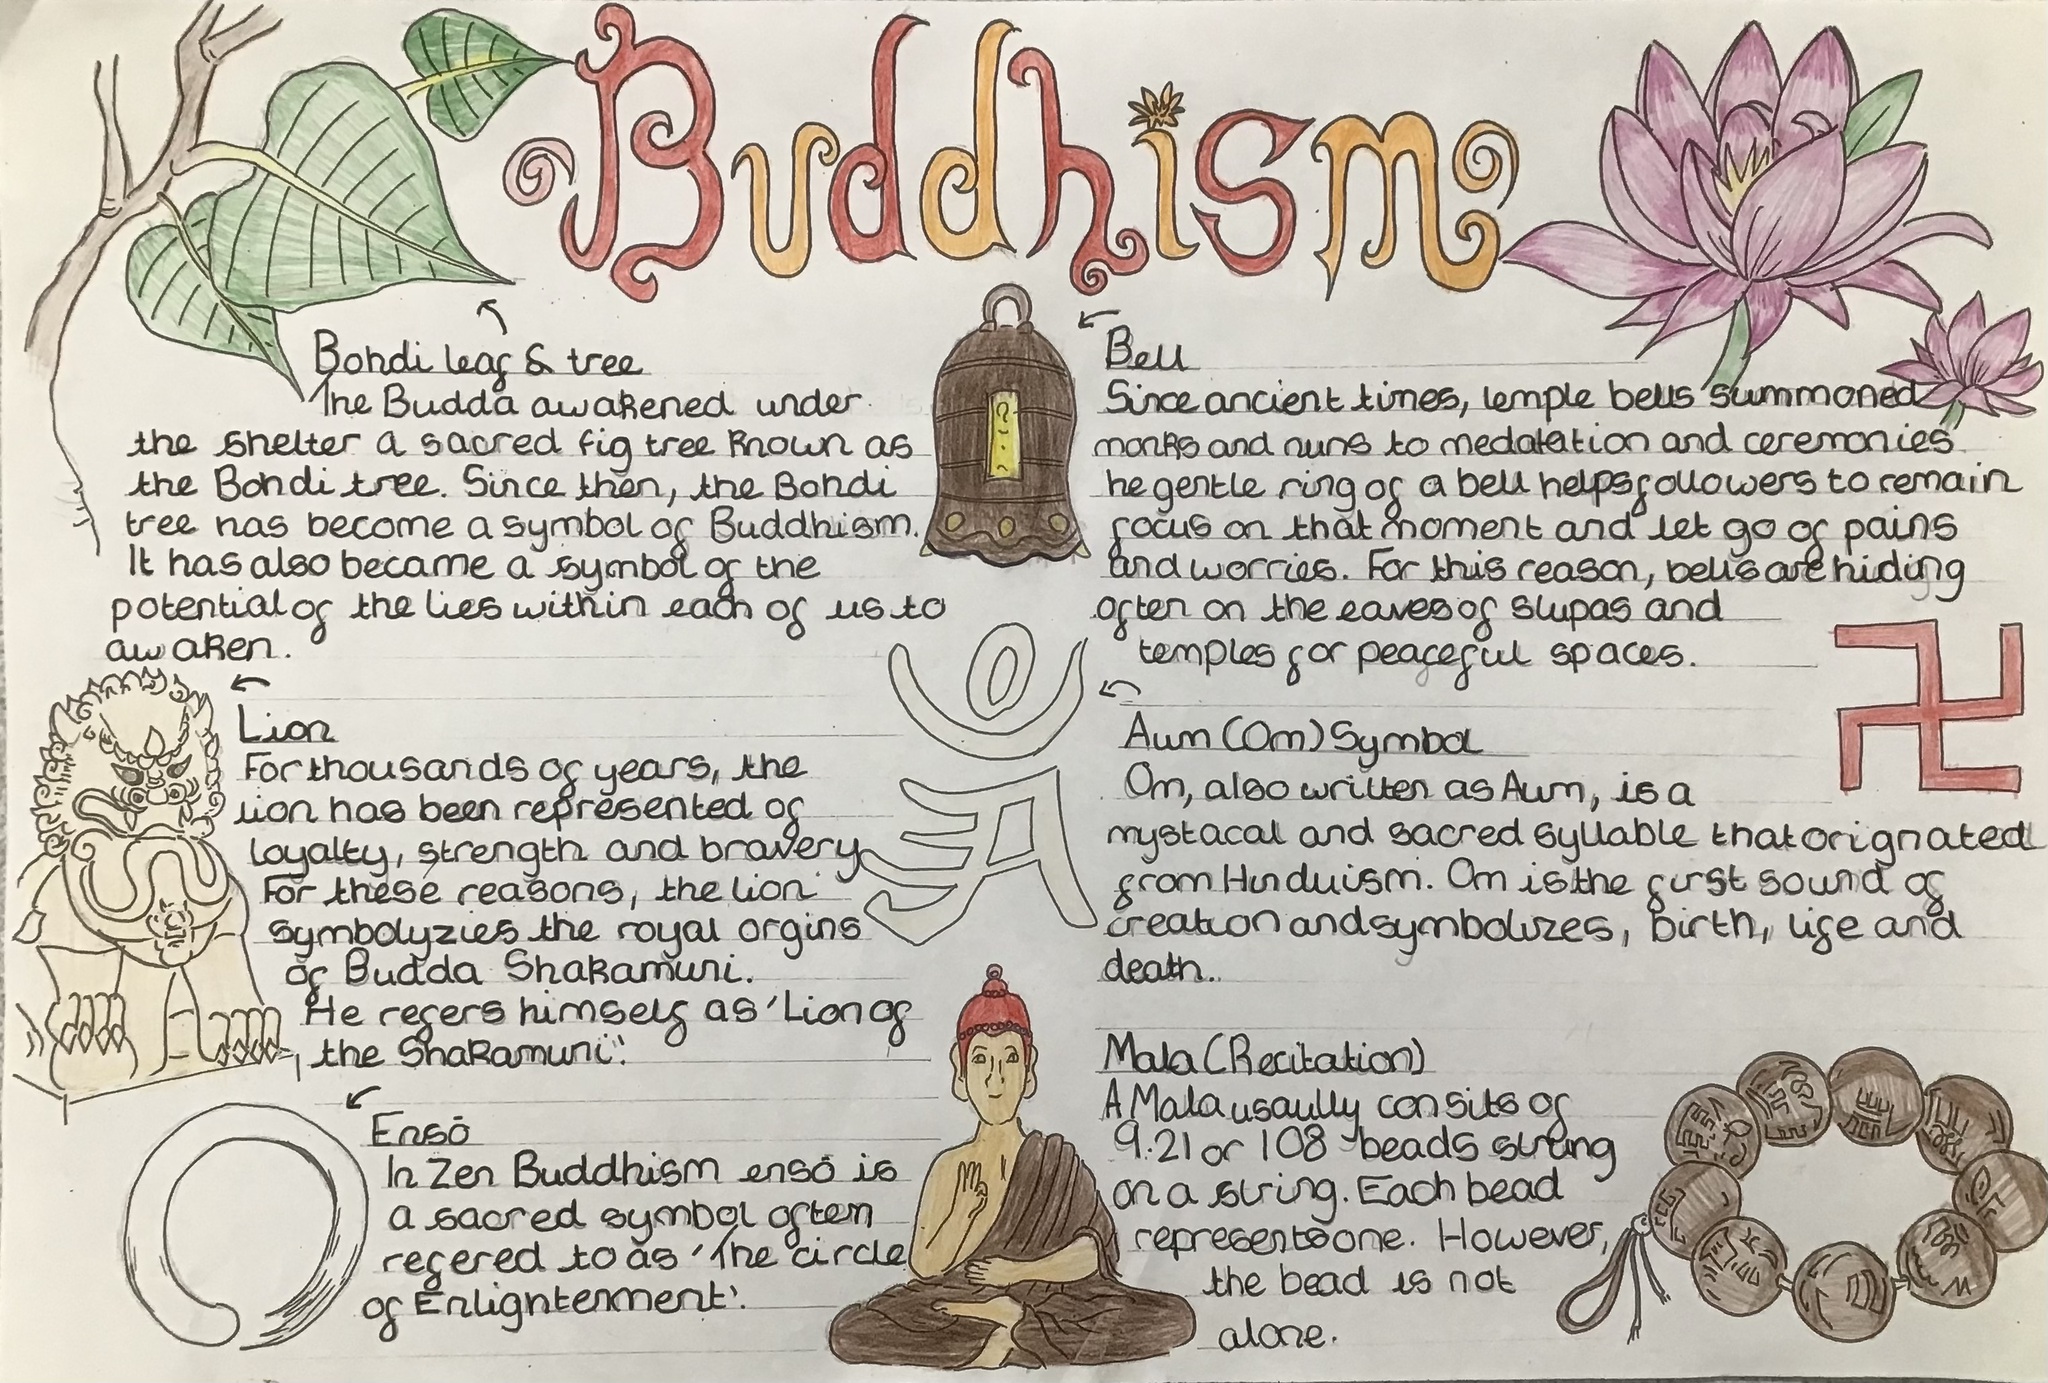 Buddhism
Bohdi leaf & tree
The Budda awakened under
the shelter a sacred fig tree known as
the Bohdi tree. Since then, the Bohdi
tree has become a symbol of Buddhism.
It has also became a symbol of the
potential of the lies within each of us to
awaken.
Bell
Since ancient times, temple bells summoned
monks and nuns to medatation and ceremonies
he gentle ring of a bell helps followers to remain
focus on that moment and let go of pains
and worries. For this reason, bells are hiding
often on the eaves of stupas and
temples for peaceful spaces.
Lion
For thousands of years, the
lion has been represented of
loyalty, strength and bravery
For these reasons, the lion
symbolyzies the royal orgins
of Budda Shakamuni.
He refers himself as 'Lion of
the Shakamuni'.
Aum (Om) Symbol
Om, also written as Aum, is a
mystacal and sacred syllable that orignated
from Hinduism. Om is the first sound of
creation and symbolizes, birth, life and
death.
Ensō
In Zen Buddhism ensō is
a sacred symbol often
refered to as 'The circle
of Enlightenment'.
Mala (Recitation)
A Mala usaully consits of
9.21 or 108 beads strung
on a string. Each bead
represents one. However,
the bead is not
alone.